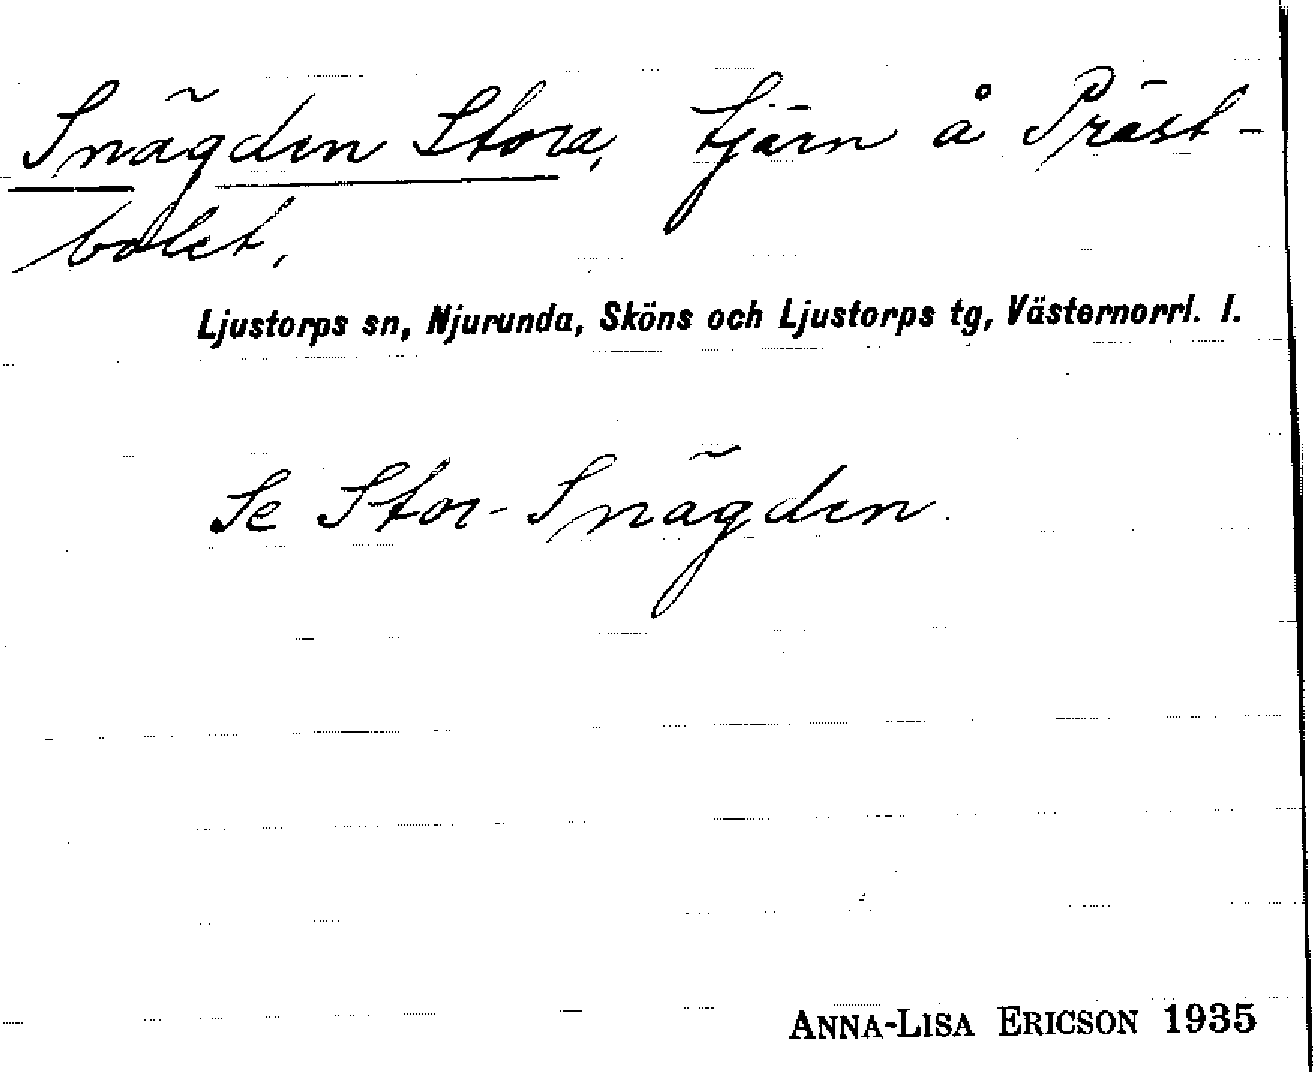 Snägden Stora, tjärn å Präst-
bolet.
Ljustorps sn, Njurunda, Sköns och Ljustorps tg, Västernorrl. l.
Se Stor-Snägden.
ANNA-LISA ERICSON 1935